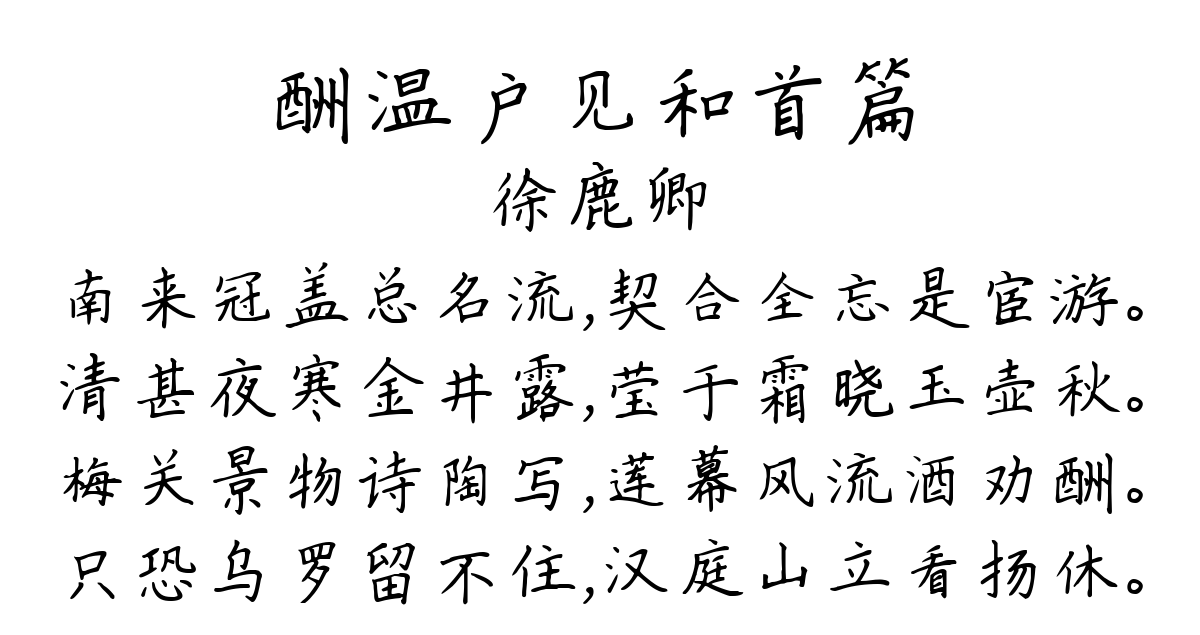 酬温户见和首篇
徐鹿卿
南来冠盖总名流,契合全忘是宦游。
清甚夜寒金井露,莹于霜晓玉壶秋。
梅关景物诗陶写,莲幕风流酒劝酬。
只恐乌罗留不住,汉庭山立看扬休。